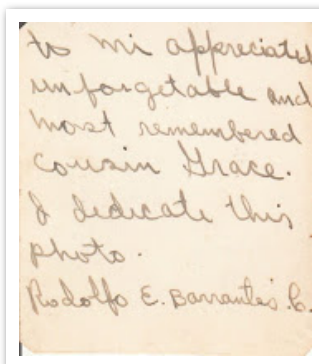 to mi appreciated
unforgetable and
most remembered
cousin Grace.
I dedicate this
photo.
Rodolfo E. Barrantes. C.